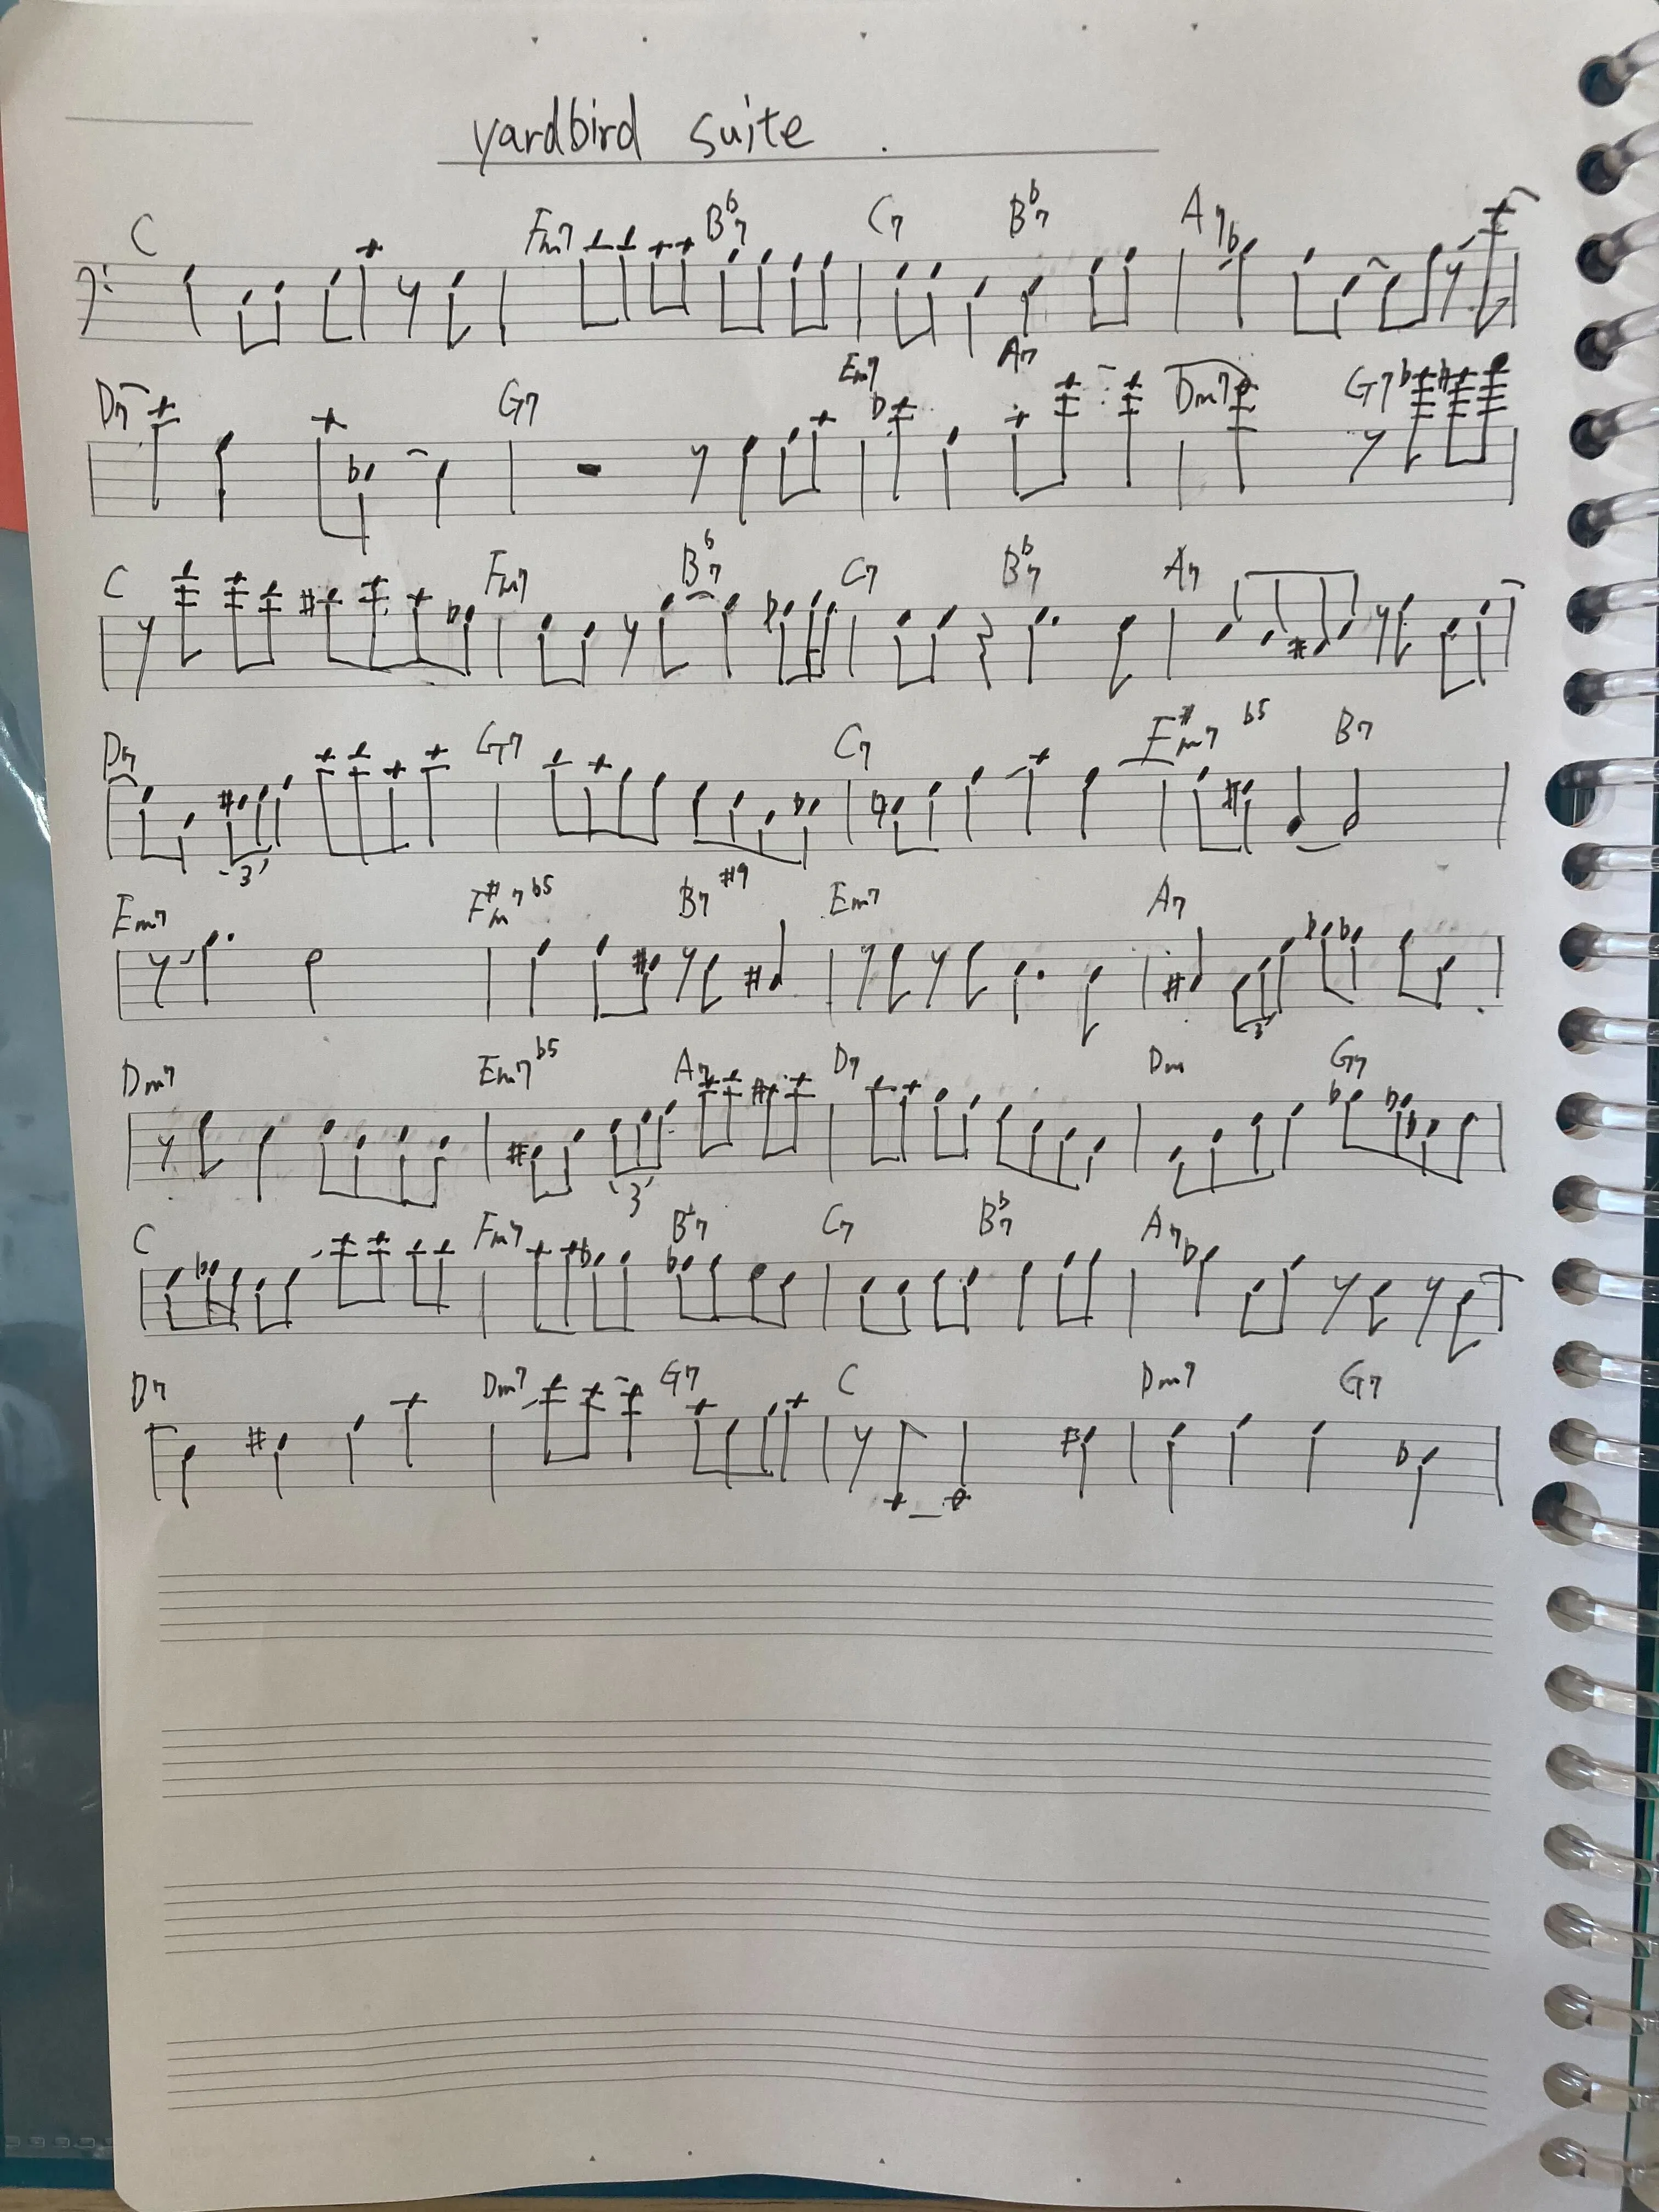 yardbird suite .
C Fm7 B♭7 C7 B♭7 A7
D7 G7 Em7 A7 Dm7 G7
C Fm7 B♭7 C7 B♭7 A7
D7 G7 C7 F#m7 b5 B7
3
Em7 F#m7b5 B7#9 Em7 A7
3
Dm7 Em7b5 A7 D7 Dm G7
3
C Fm7 B♭7 C7 B♭7 A7
D7 Dm7 G7 C Dm7 G7